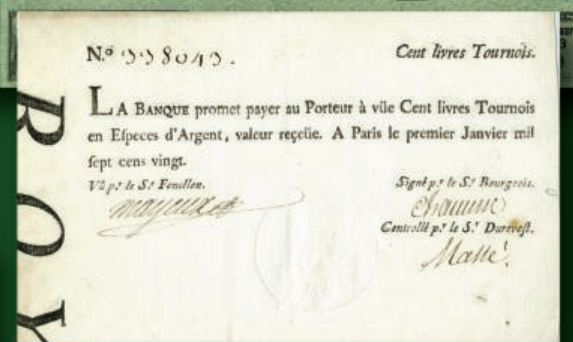 N.o 338043.
Cent livres Tournois.
LA BANQUE promet payer au Porteur à vüe Cent livres Tournois
en Eſpeces d'Argent, valeur reçeüe. A Paris le premier Janvier mil
ſept cens vingt.
Vû p.r le S.r Fenellon.
Signé p.r le S.r Bourgeois.
Controllé p.r le S.r Dureveſt.
R O Y